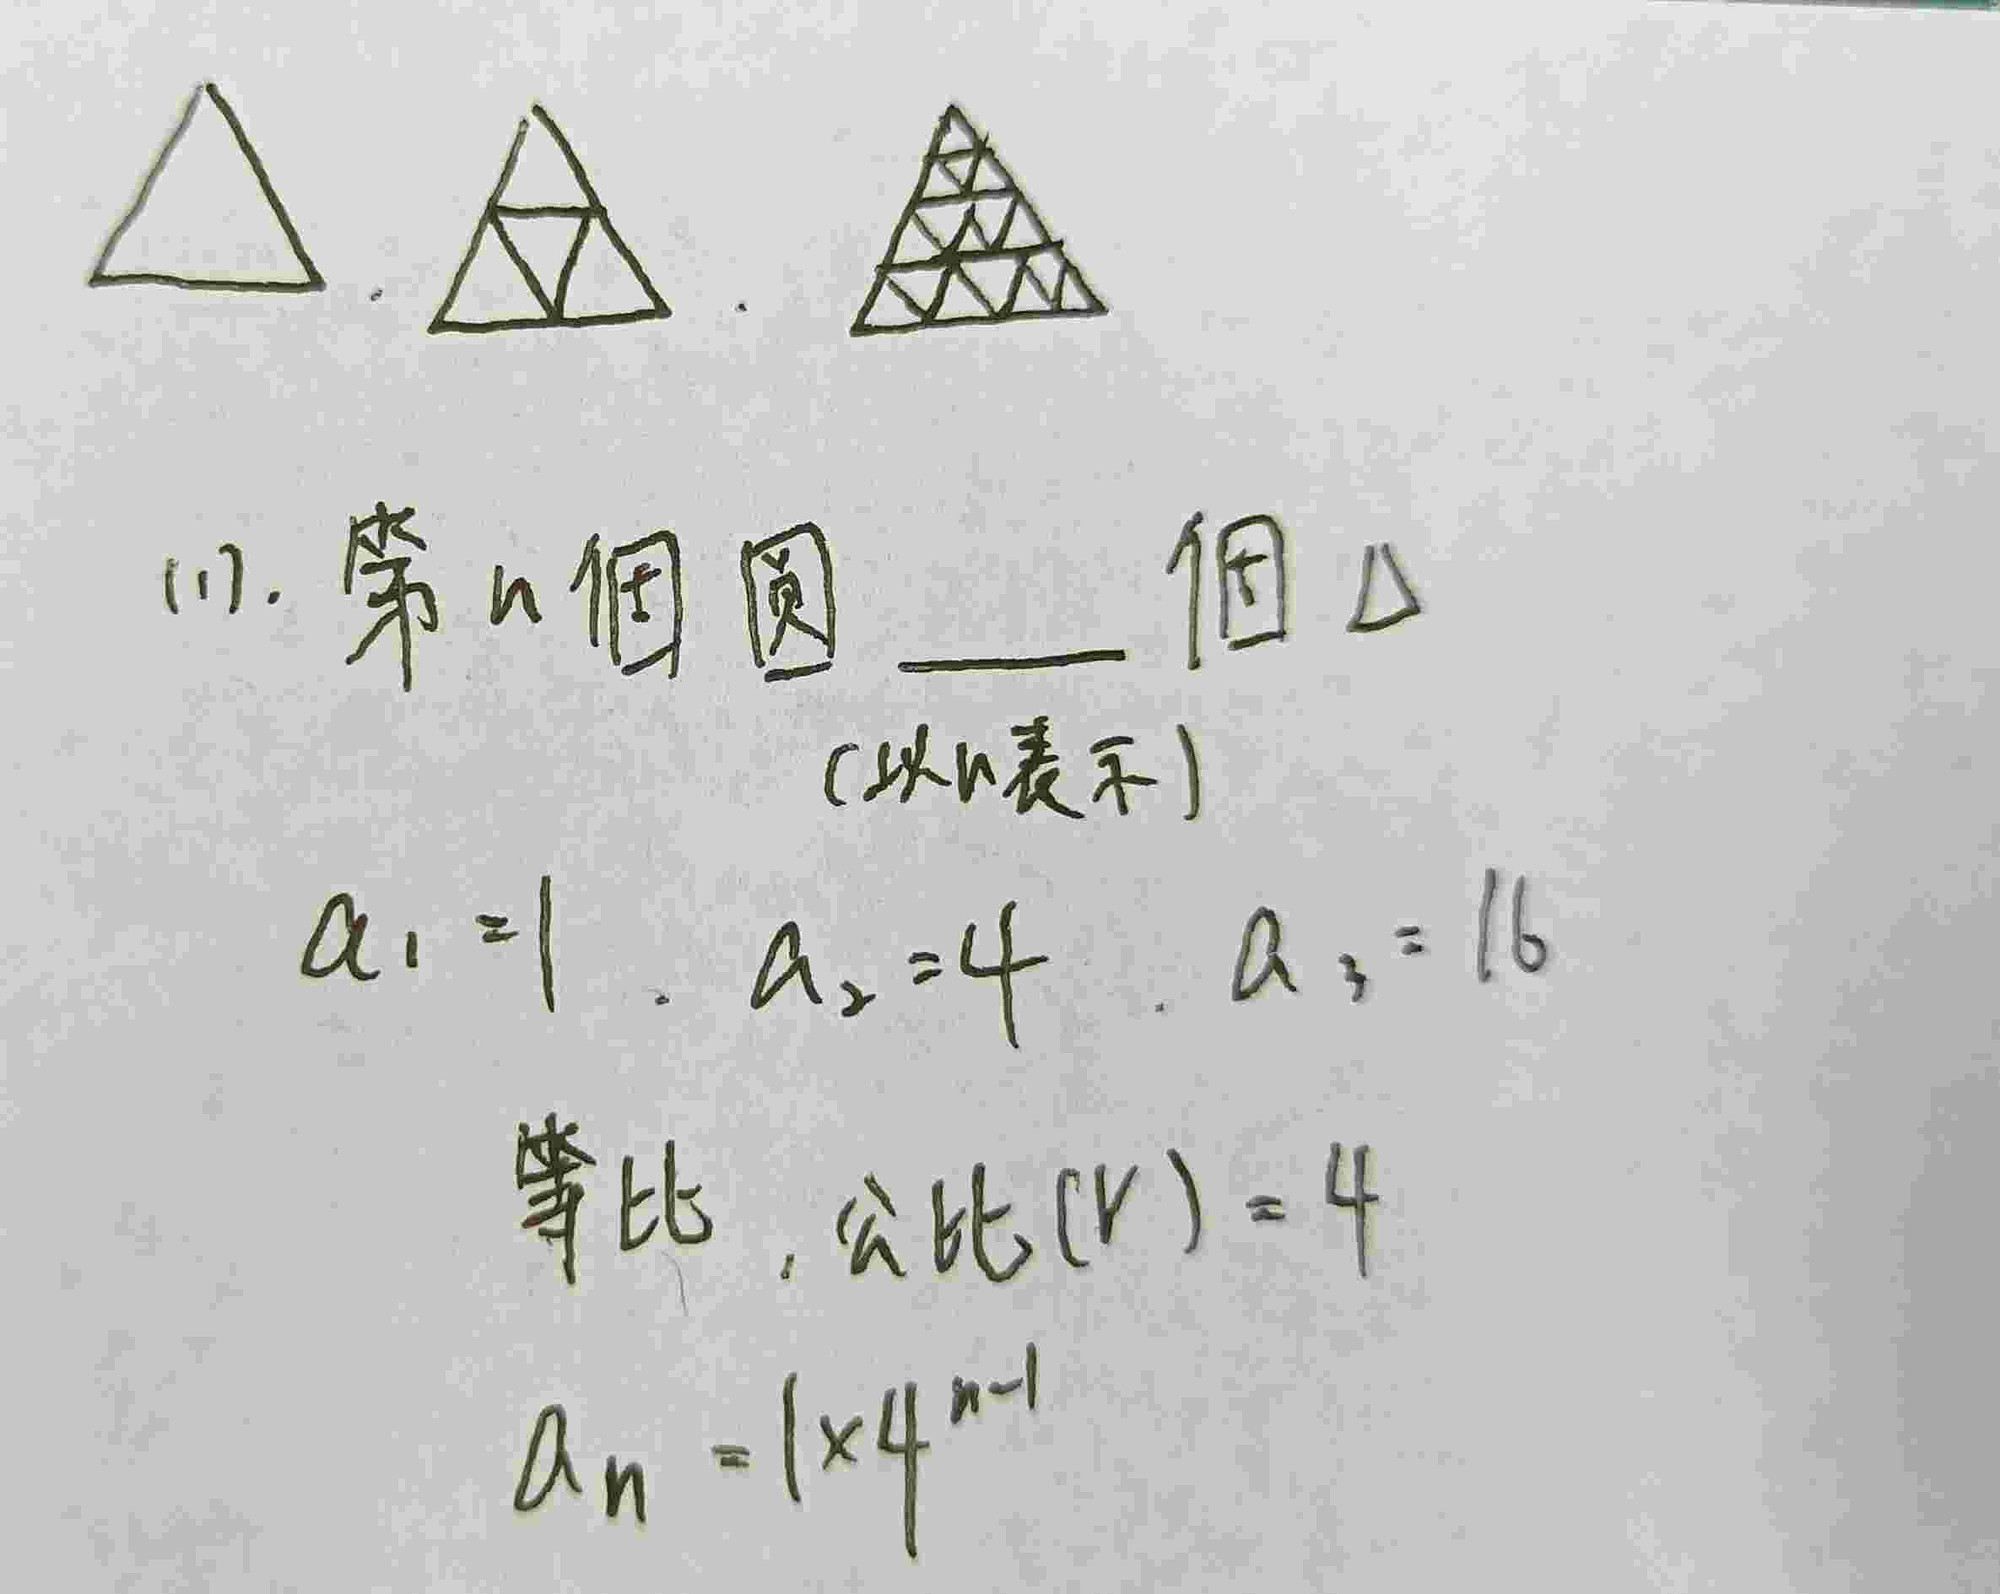 (1). 第n個圓____個△
(以n表示)
a₁=1、a₂=4、a₃=16
等比、公比(r)=4
aₙ=1×4ⁿ⁻¹